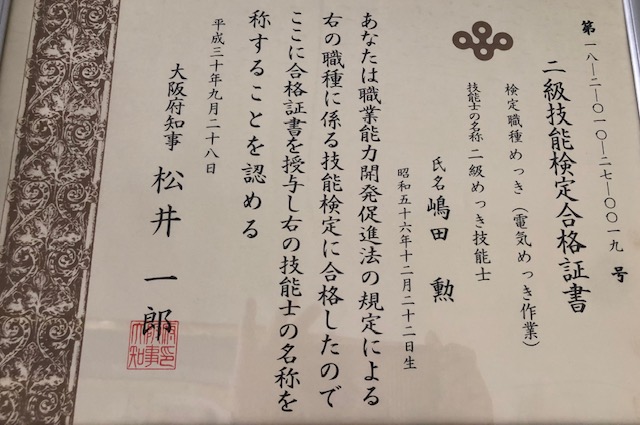 第一八―二―〇一〇―二七―〇〇一九号
二級技能検定合格証書
検定職種めっき（電気めっき作業）
技能士の名称二級めっき技能士
氏名嶋田勲
昭和五十六年十二月二十二日生
あなたは職業能力開発促進法の規定による
右の職種に係る技能検定に合格したので
ここに合格証書を授与し右の技能士の名称を
称することを認める
平成三十年九月二十八日
大阪府知事 松井一郎